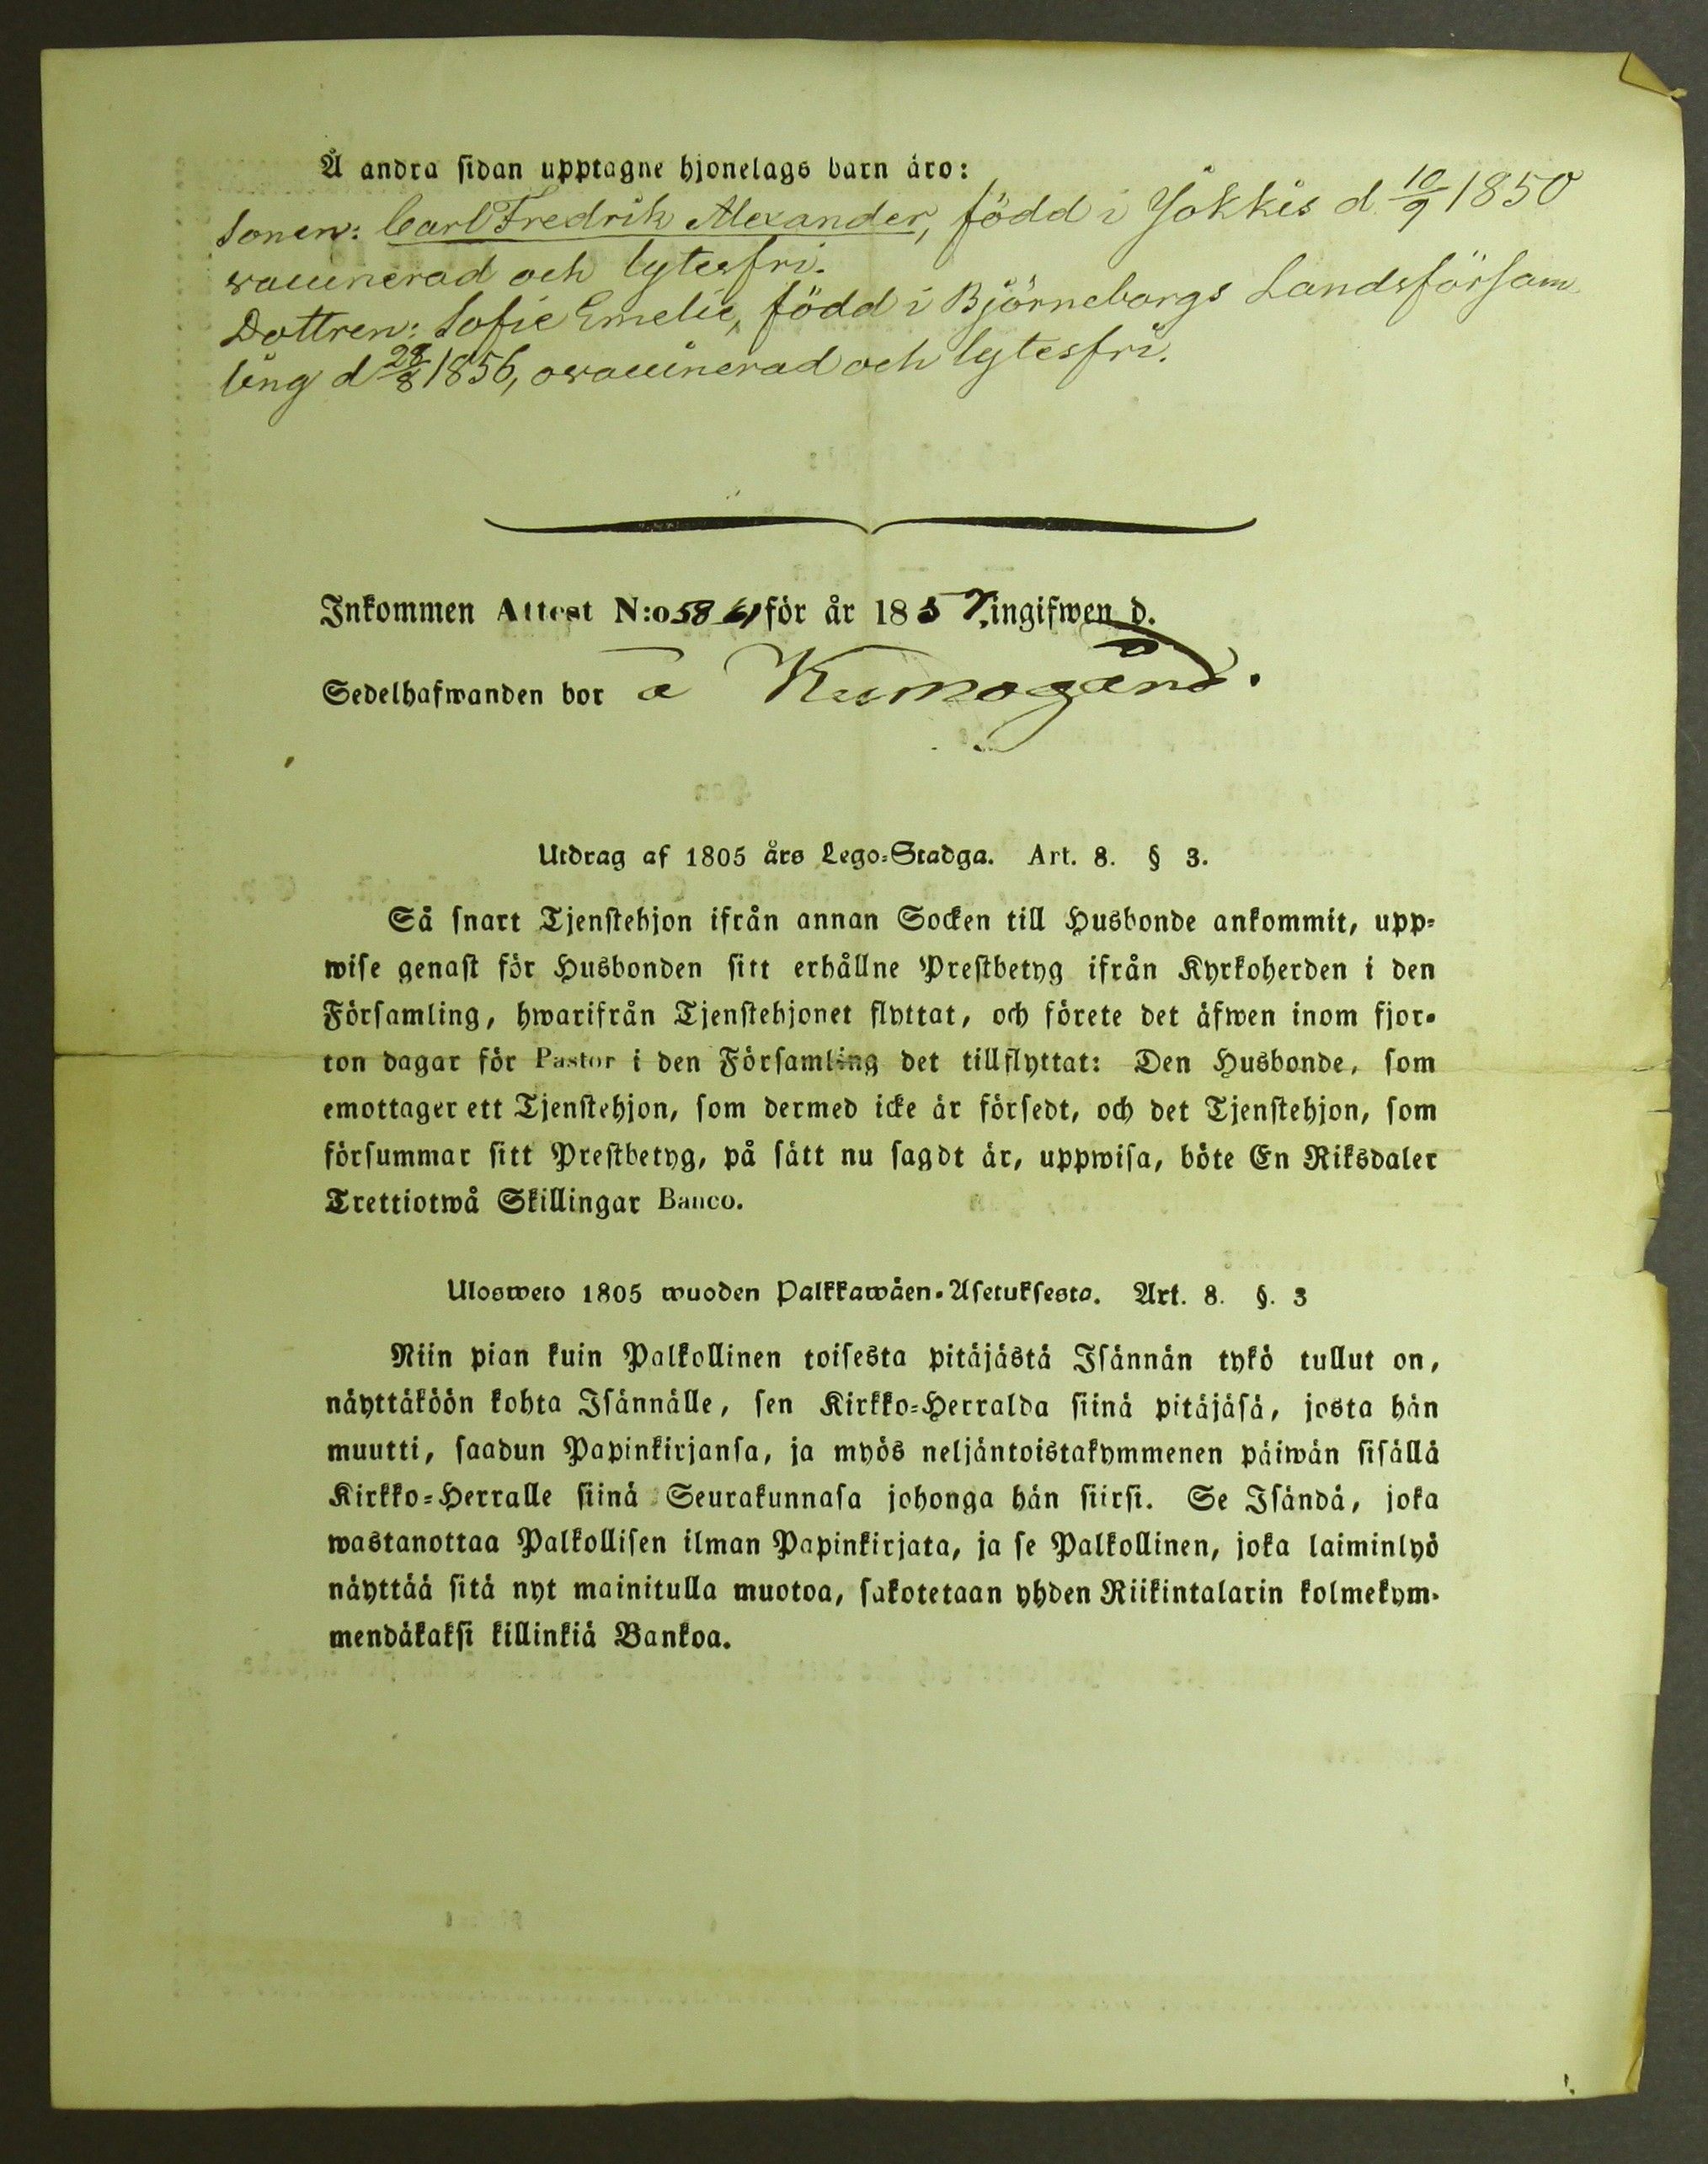 Å andra sidan upptagne hjonelags barn äro:
Sonen: Carl Fredrik Alexander, född i Jokkis d. 10/9 1850
vaccinerad och lytesfri.
Dottren: Sofie Emelie, född i Björneborgs Landsförsam
ling d 28/8 1856, ovaccinerad och lytesfri.
Inkommen Attest N:o 58 för år 1857, ingifwen d.
Sedelhafwanden bor å Kumogård.
Utdrag af 1805 års Lego-Stadga. Art. 8. § 3.
Så snart Tjenstehjon ifrån annan Socken till Husbonde ankommit, upp-
wise genast för Husbonden sitt erhållne Prestbetyg ifrån Kyrkoherden i den
Församling, hwarifrån Tjenstehjonet flyttat, och förete det äfwen inom fjor-
ton dagar för Pastor i den Församling det tillflyttat: Den Husbonde, som
emottager ett Tjenstehjon, som dermed icke är försedt, och det Tjenstehjon, som
försummar sitt Prestbetyg, på sätt nu sagdt är, uppwisa, böte En Riksdaler
Trettiotwå Skillingar Banco.
Ulosweto 1805 wuoden Palkkawäen-Asetuksesta. Art. 8. §. 3
Niin pian kuin Palkollinen toisesta pitäjästä Isännän tykö tullut on,
näyttäköön kohta Isännälle, sen Kirkko-Herralda siinä pitäjäsä, josta hän
muutti, saadun Papinkirjansa, ja myös neljäntoistakymmenen päiwän sisällä
Kirkko-Herralle siinä Seurakunnasa johonga hän siirsi. Se Isändä, joka
wastanottaa Palkollisen ilman Papinkirjata, ja se Palkollinen, joka laiminlyö
näyttää sitä nyt mainitulla muotoa, sakotetaan yhden Riikintalarin kolmekym-
mendäkaksi killinkiä Bankoa.